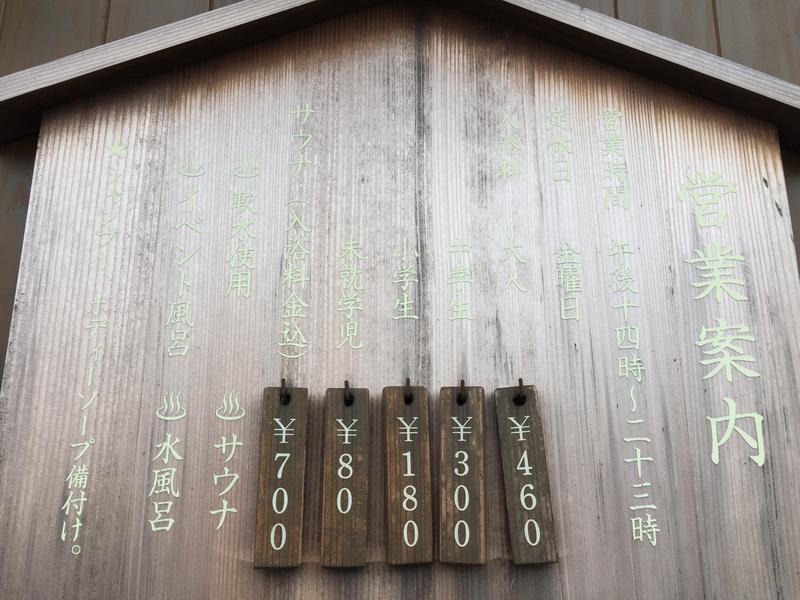 営業案内
営業時間 午後十四時～二十三時
定休日 金曜日
入浴料 大人 ¥460
中学生 ¥300
小学生 ¥180
未就学児 ¥80
サウナ(入浴料金込) ¥700
♨軟水使用 ♨サウナ
♨イベント風呂 ♨水風呂
★シャンプー、ボディーソープ備付け。